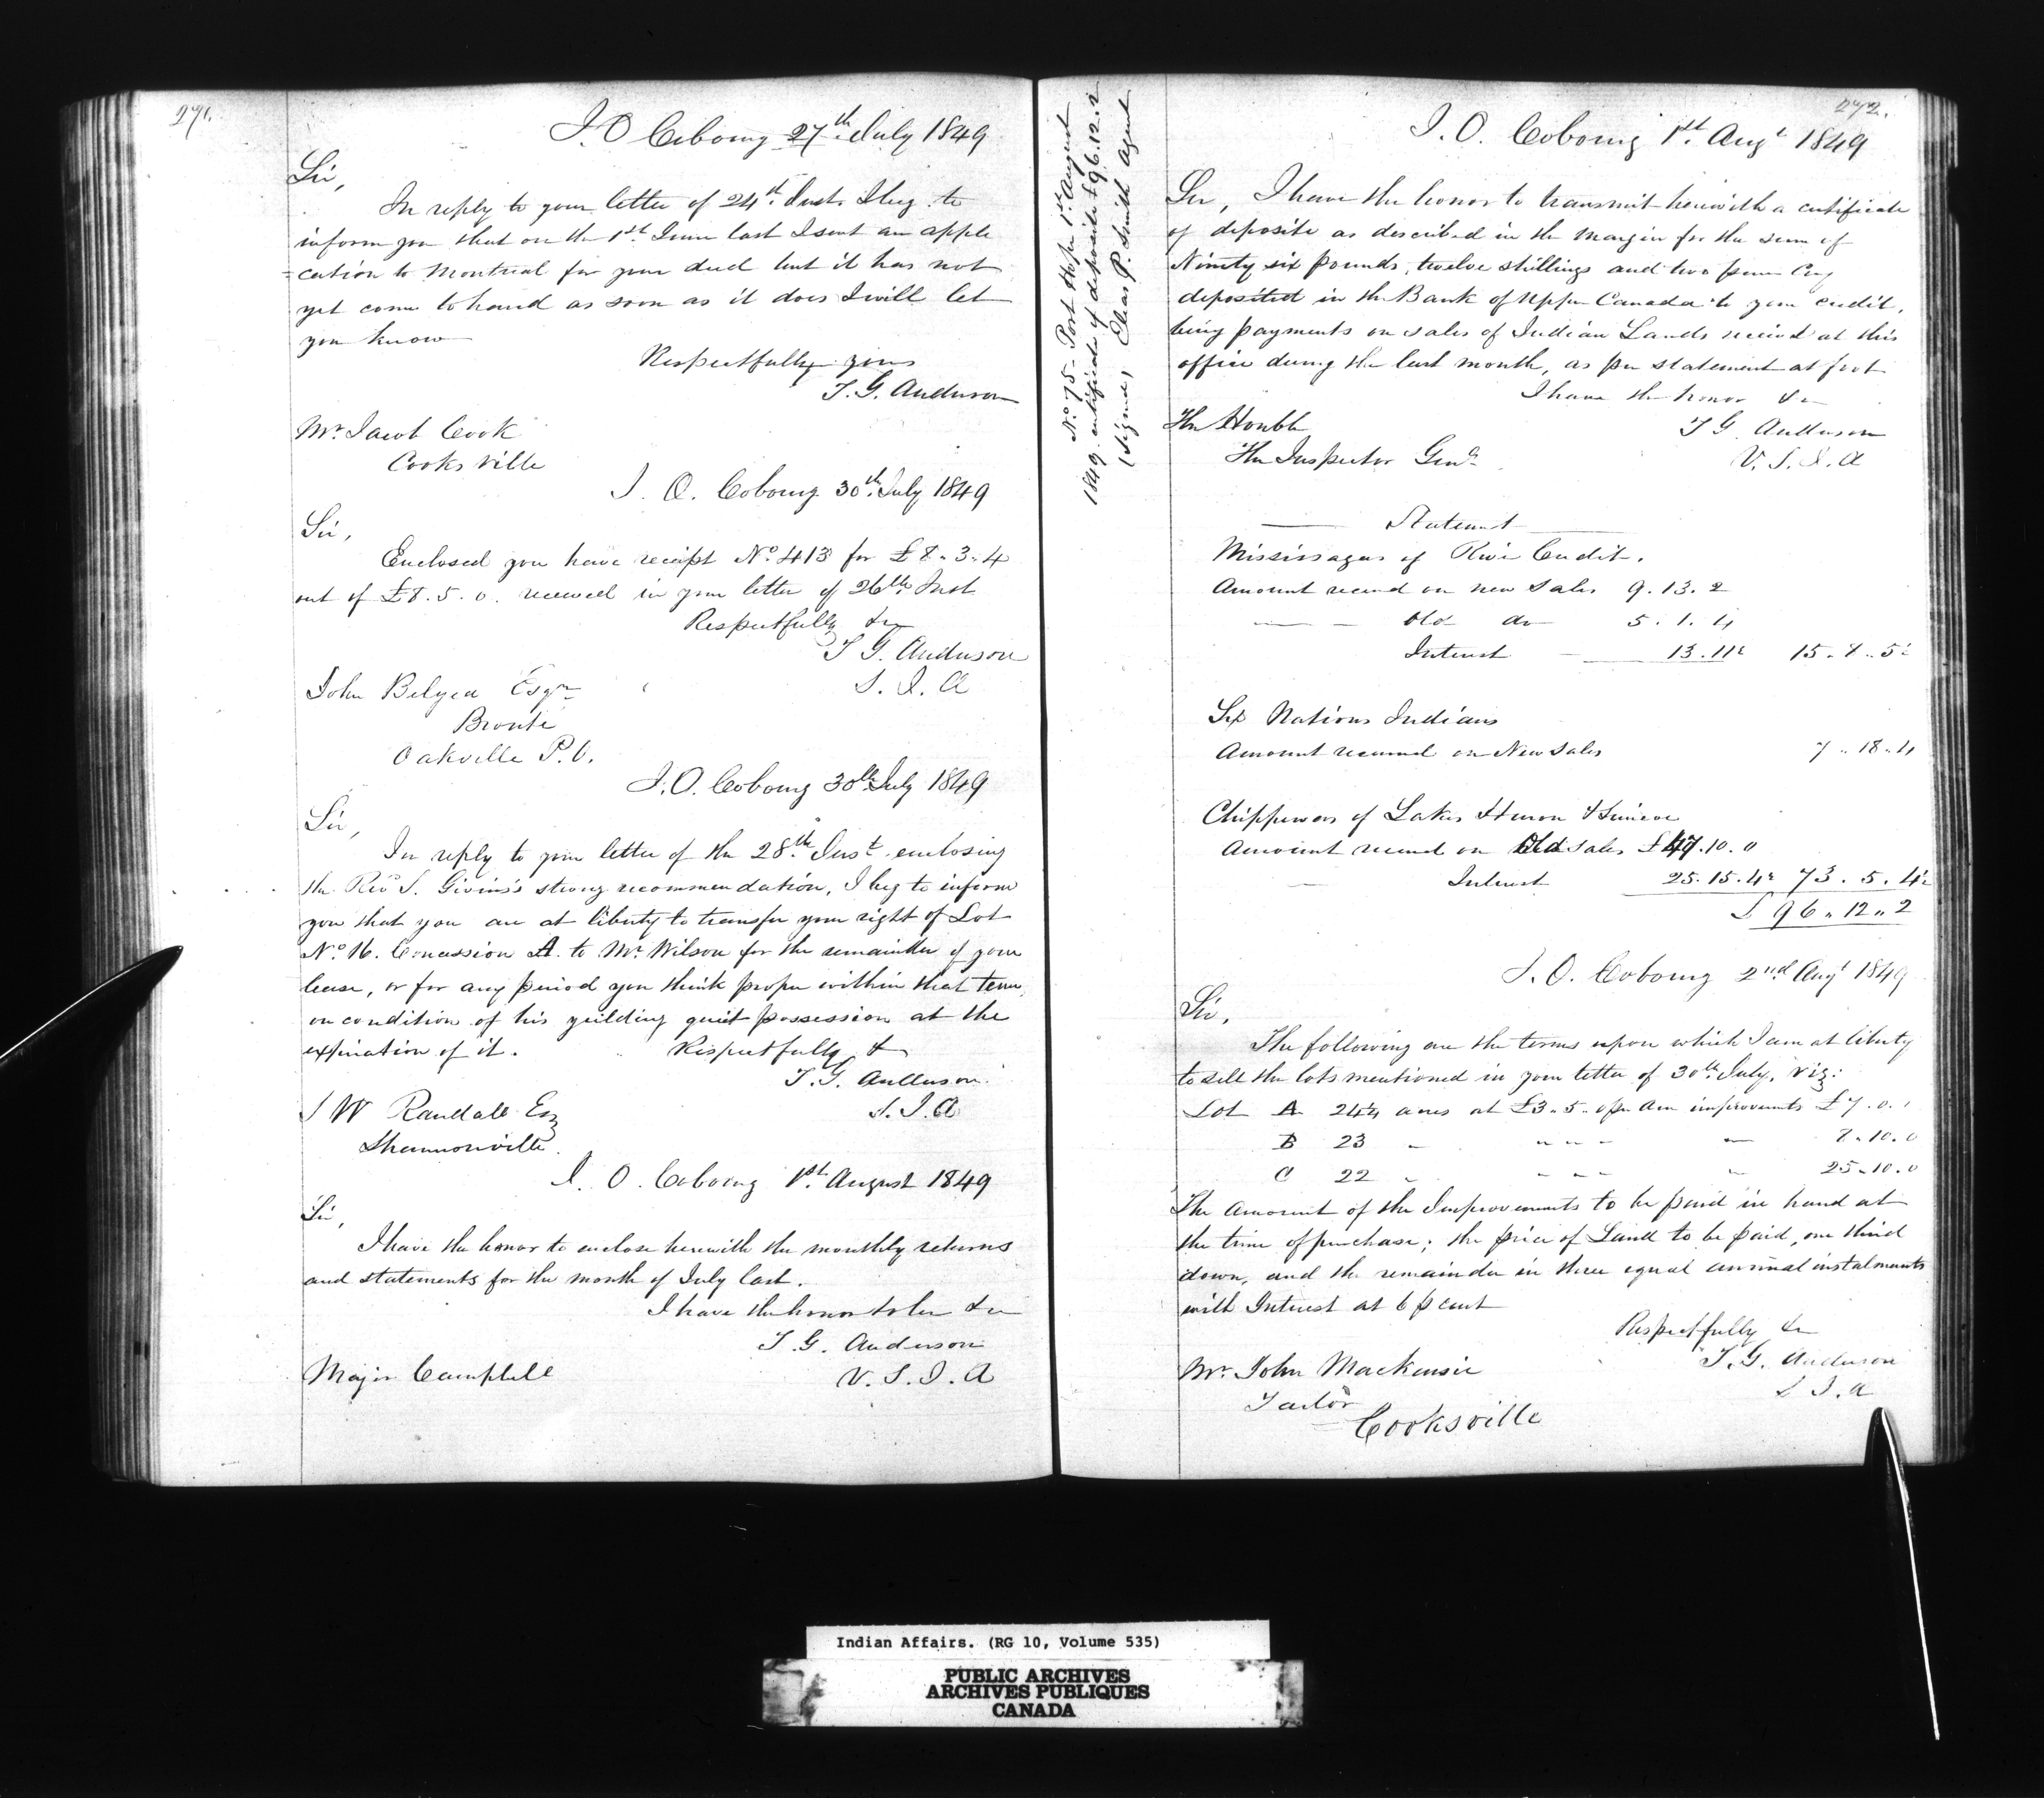 271.
I. O Cobourg 27th July 1849
Sir,
In reply to your letter of 24th Inst. I beg to
inform you that on the 1st June last I sent an appli
=cation to Montreal for your deed but it has not
yet come to hand as soon as it does I will let
you know
Respectfully yours
T. G. Anderson
Mr. Jacob Cook
Cooksville
I. O. Cobourg 30th July 1849
Sir,
Enclosed you have receipt No. 413 for £8.3.4
out of £8.5.0. received in your letter of 26th Inst
Respectfully &c
T G. Anderson
S. I. A
John Belyea Esqr
Bronte
Oakville P.O.
I. O. Cobourg 30th July 1849
Sir,
In reply to your letter of the 28th Inst. enclosing
the Revd S. Givins's strong recommendation, I beg to inform
you that you are at liberty to transfer your right of Lot
No. 16. Concession A. to Mr. Wilson for the remainder of your
lease, or for any period you think proper within that term,
on condition of his yeilding quiet possession at the
expiration of it.
Respectfully &
T. G. Anderson.
S. I. A
S W Randall Esq
Shannonville.
I. O. Cobourg 1st August 1849
Sir,
I have the honor to enclose herewith the monthly returns
and statements for the month of July last.
I have the honor to be &c
T. G. Anderson
V. S. I. A
Major Campbell
272.
No. 75 - Port Hope 1st August
1849 certificate of deposite £96.12.2
(Signed, Elias P. Smith Agent
I. O. Cobourg 1st. Augt 1849
Sir, I have the honor to transmit herewith a certificate
of deposite as described in the Margin for the sum of
Ninety six pounds, twelve shillings and two pence Cey
deposited in the Bank of Upper Canada to your credit,
being payments on sales of Indian Lands received at this
office during the last month, as per statement at foot
I have the honor &c
The Honble
T G. Anderson
The Inspector Genl.
V. S. I. A
Statement
Mississagas of River Credit.
Amount received on new Sales 9.13.2
Old do 5.1.4
Interest 13.11½ 15.8.5½
Six Nations Indians
Amount received on New Sales 7.18.4
Chippewas of Lakes Huron & Simcoe
Amount received on Old Sales £47.10.0
Interest 25.15.4½ 73.5.4½
£96.12.2
I. O. Cobourg 2nd Augt 1849
Sir,
The following are the terms upon which I am at liberty
to sell the lots mentioned in your letter of 30th July, viz:
Lot A 24¼ acres at £3.5.0 pr Acre improvements £7.0.0
B 23 " " " " 7.10.0
C 22 " " " " 25.10.0
The Amount of the Improvements to be paid in hand at
the time of purchase; the price of Land to be paid, one third
down, and the remainder in three equal annual instalments
with Interest at 6 p cent
Respectfully &c
T. G. Anderson
S I. A
Mr. John Mackensie
Tailor
Cooksville
Indian Affairs. (RG 10, Volume 535)
PUBLIC ARCHIVES
ARCHIVES PUBLIQUES
CANADA